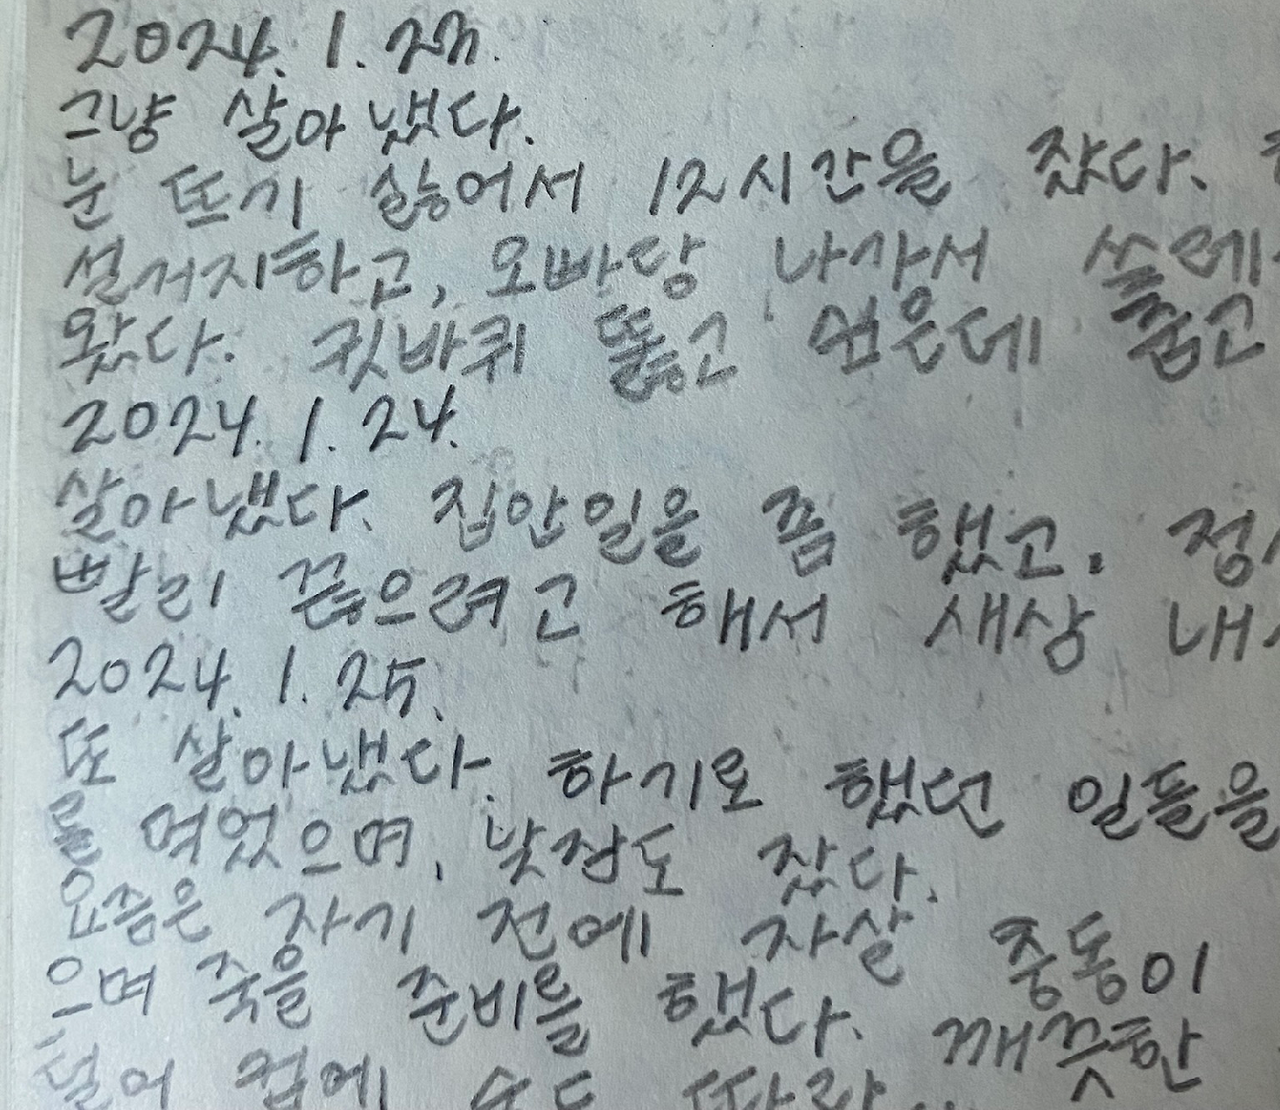 2024. 1. 23.
그냥 살아 냈다.
눈 뜨기 싫어서 12시간을 잤다.
설거지하고, 오빠랑 나가서 쓸레
왔다. 귓바퀴 뚫고 싶은데 줌고
2024. 1. 24.
살아냈다. 집안일을 쫌 했고. 정
빨리 끊으려고 해서 새상 내
2024. 1. 25.
또 살아냈다. 하기로 했던 일들을
을 먹었으며, 낮잠도 잤다.
요즘은 자기 전에 자살 충동이
으며 죽을 준비를 했다. 깨끗한
넣어 컵에